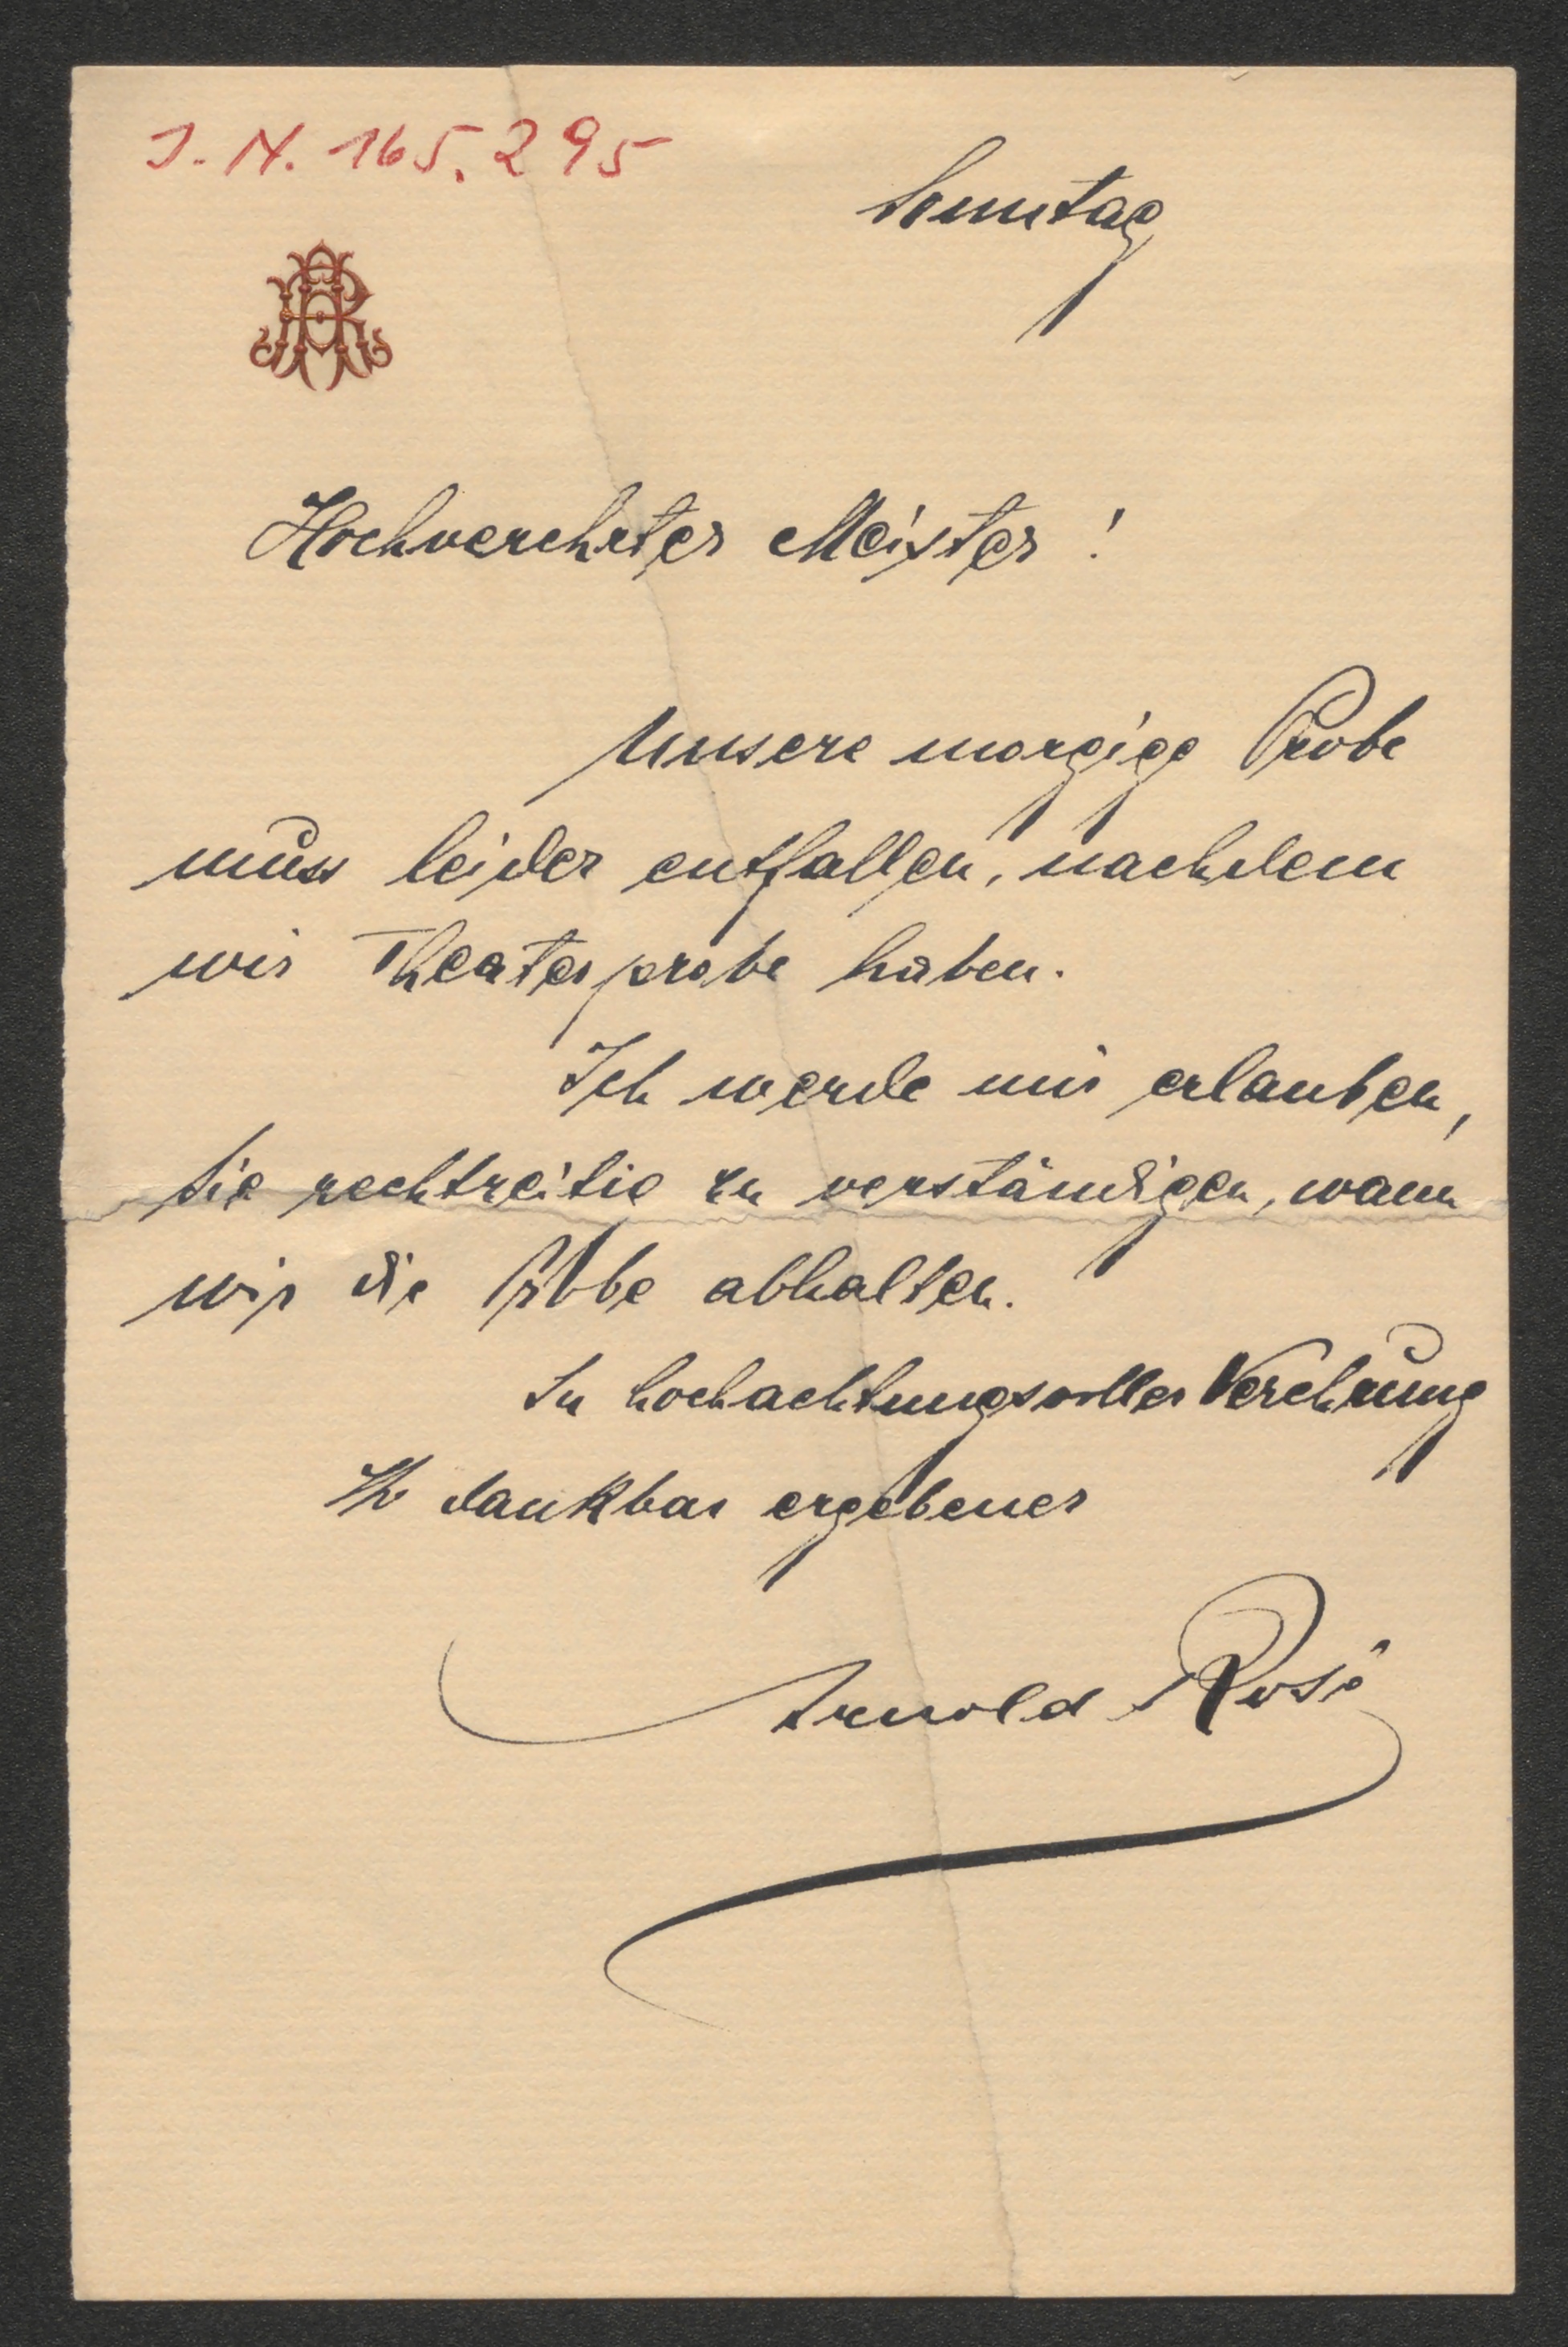 J. N. 165.295
Sonntag
AR
Hochverehrter Meister!
Unsere morgige Probe
muss leider entfallen, nachdem
wir Theaterprobe haben.
Ich werde mir erlauben,
Sie rechtzeitig zu verständigen, wann
wir die Probe abhalten.
In hochachtungsvoller Verehrung
Ihr dankbar ergebener
Arnold Rosé